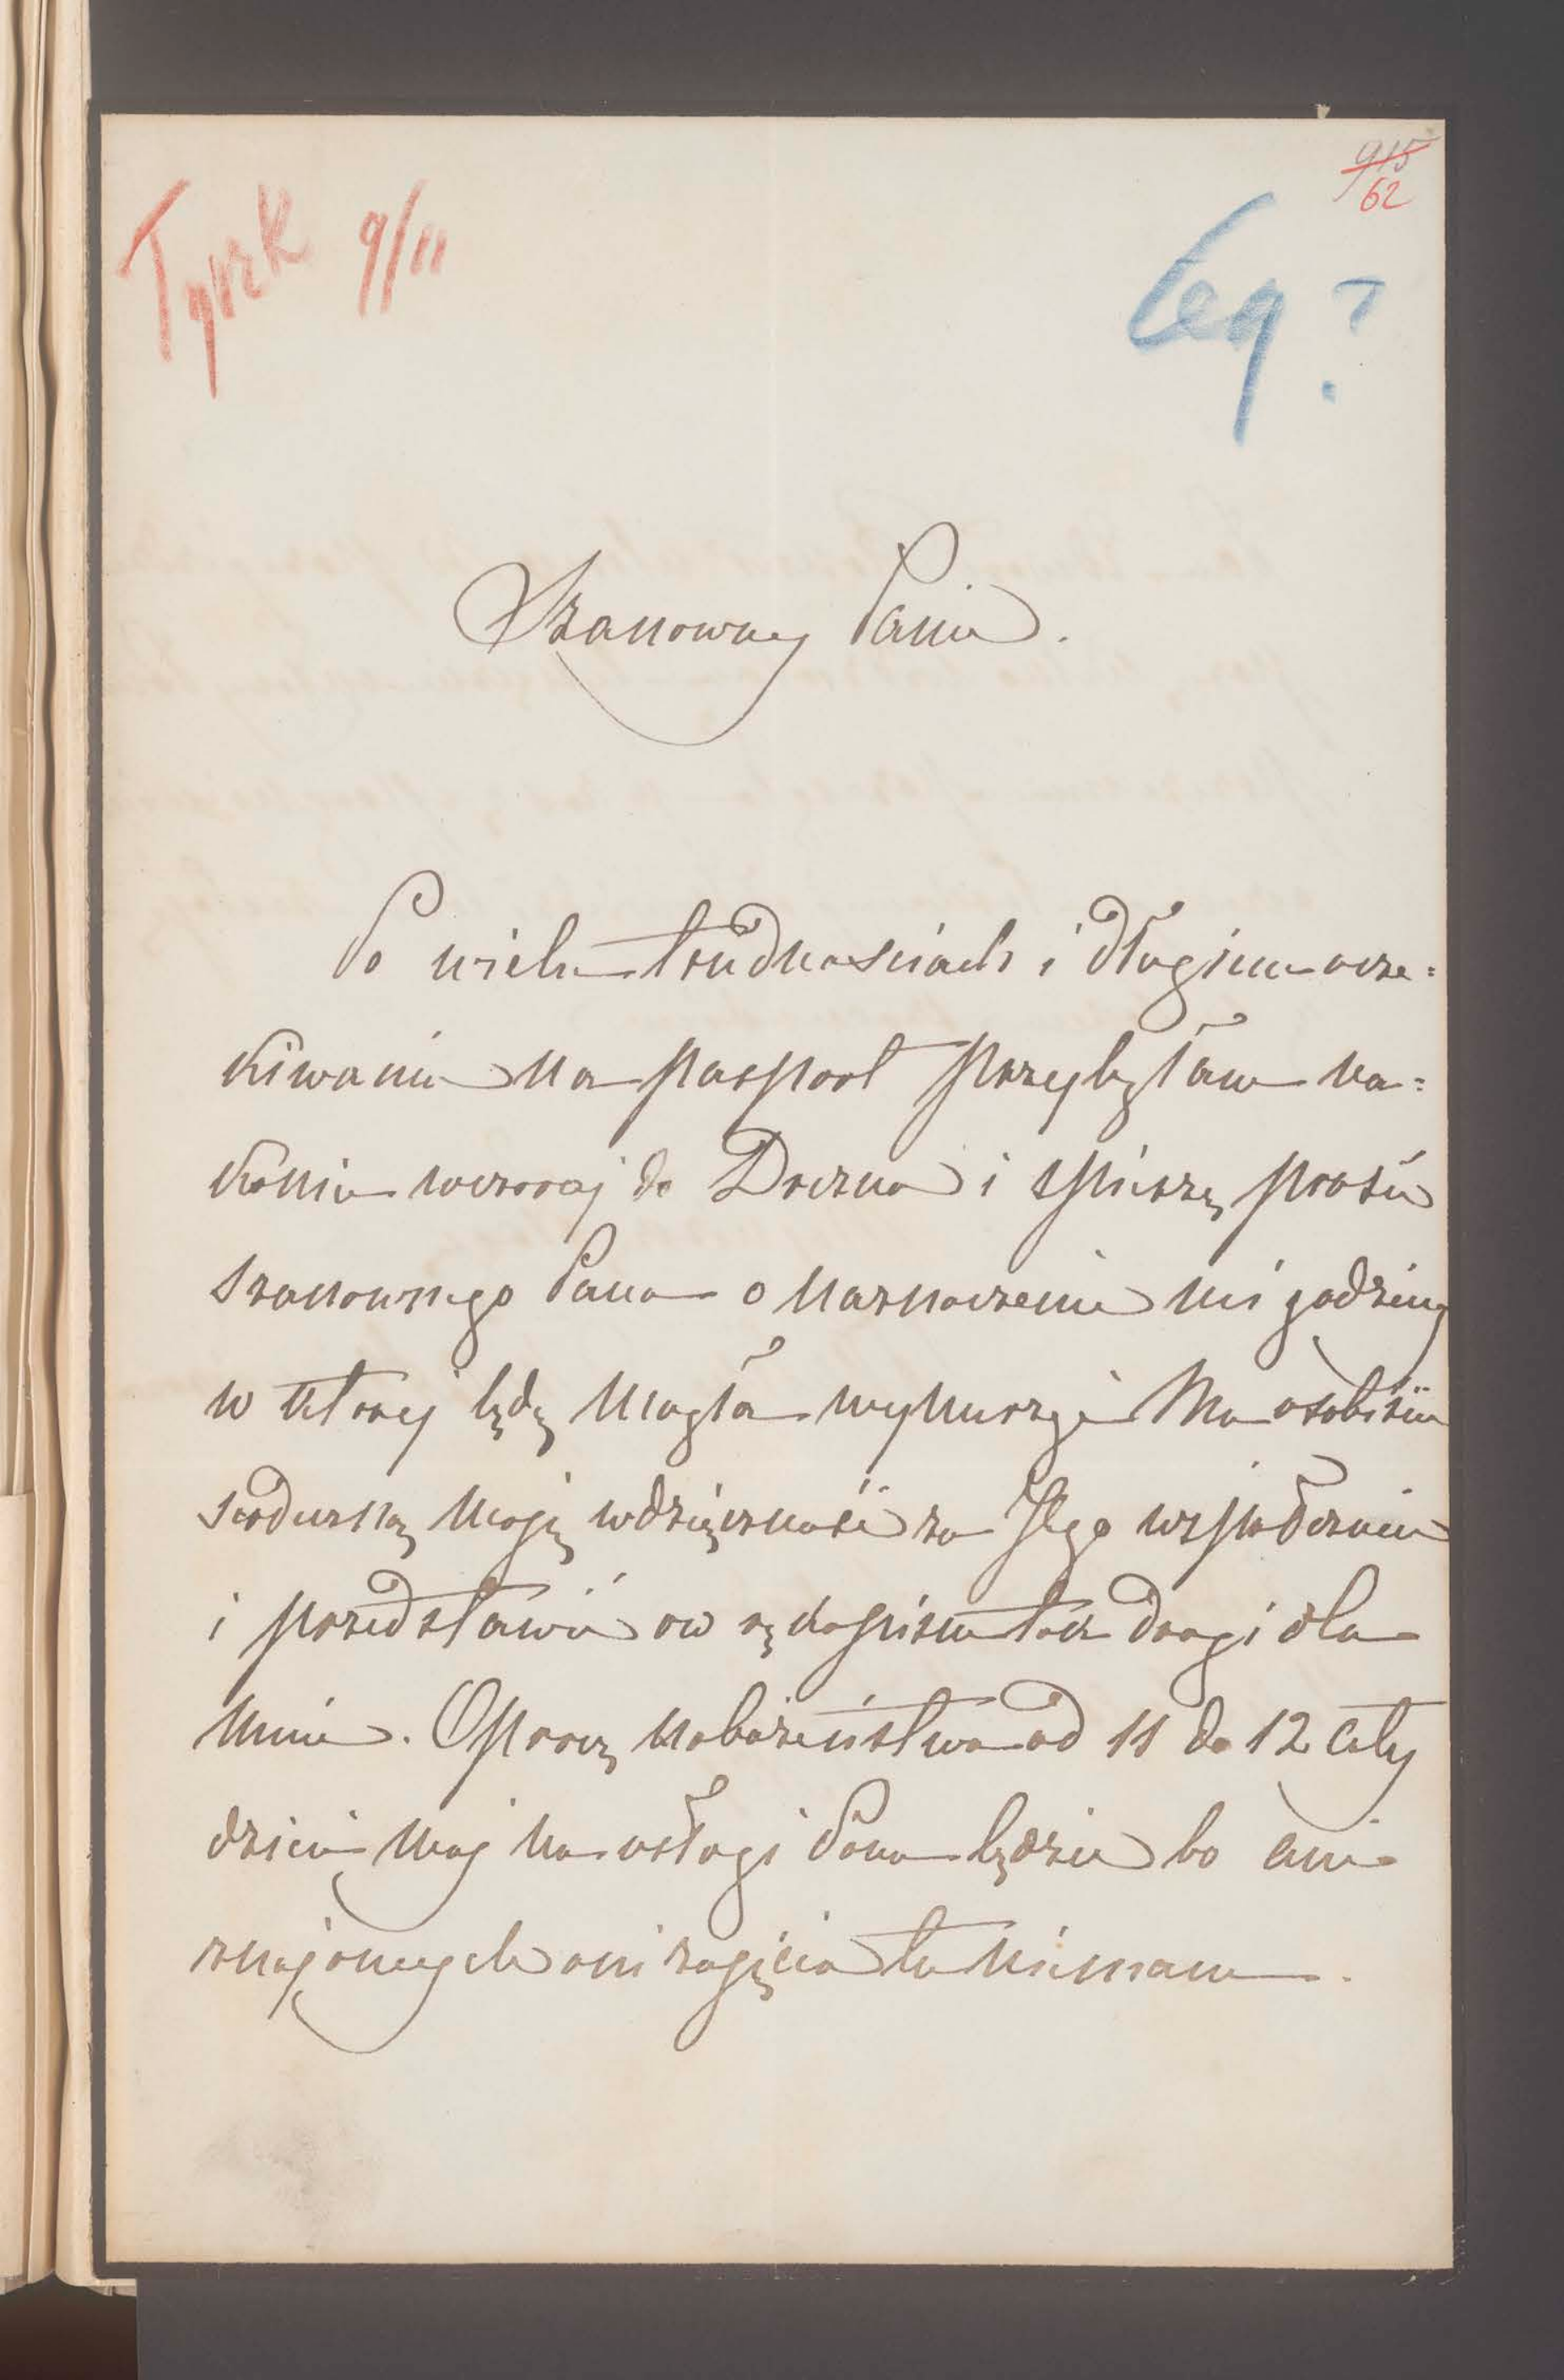 915
62
Tyszk 9/11
Ceq?
Szanowny Panie.
Po wielu trudnościach i długim ocze=
kiwaniu na pasport przybyłam na=
konie wczoraj do Drezna i spieszę prosić
szanownego Pana o naznaczenie mi godziny
w której będę mogła wynurzyć Mu osobiście
serdeczną moją wdzięczność za Jego współczucie
i przedstawić ów rękopism tak drogi dla
mnie. Oprócz nabożeństwa od 11 do 12 cały
dzień mój na usługi Pana będzie bo ani
znajomych ani zajęcia tu niemam.